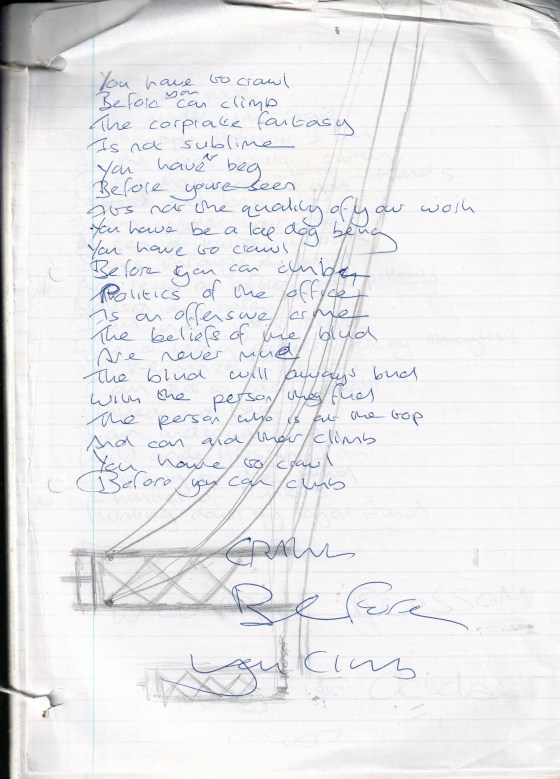 You have to crawl
Before you can climb
The corprate fantasy
Is not sublime
You have to beg
Before youre seen
Its not the quality of your work
You have be a lap dog being
You have to crawl
Before you can climb
Politics of the office
Is an offensive crime
The beliefs of the blind
Are never
The blind will always bind
With the person they find
The person who is at the top
And can aid their climb
You have to crawl
Before you can climb
CRAWL
Before
you Climb